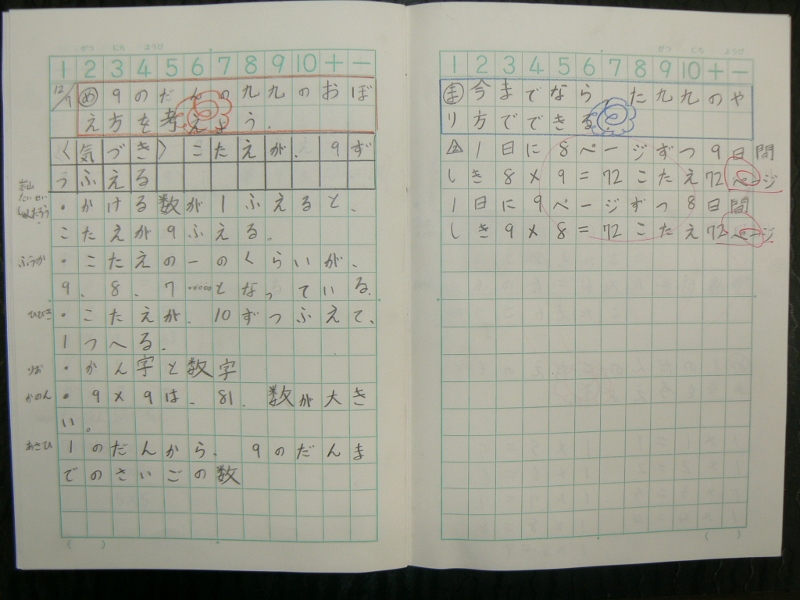 がつ にち ようび
1 2 3 4 5 6 7 8 9 10 + −
12/1
め 9のだんの九九のおぼ
え方を考えよう。
〈気づき〉こたえが、9ず
つふえる
・かける数が1ふえると、
こたえが9ふえる。
ふうか ・こたえの一のくらいが、
9、8、7……となっている。
ひびき ・こたえが、10ずつふえて、
1つへる。
りお ・かん字と数字
かのん ・9×9は、81、数が大き
い。
あさひ 1のだんから、9のだんま
でのさいごの数
がつ にち ようび
1 2 3 4 5 6 7 8 9 10 + −
ま 今までなら た九九のや
り方でできる
1日に8ページずつ9日間
しき8×9=72こたえ72ページ
1日に9ページずつ8日間
しき9×8=72こたえ72ページ